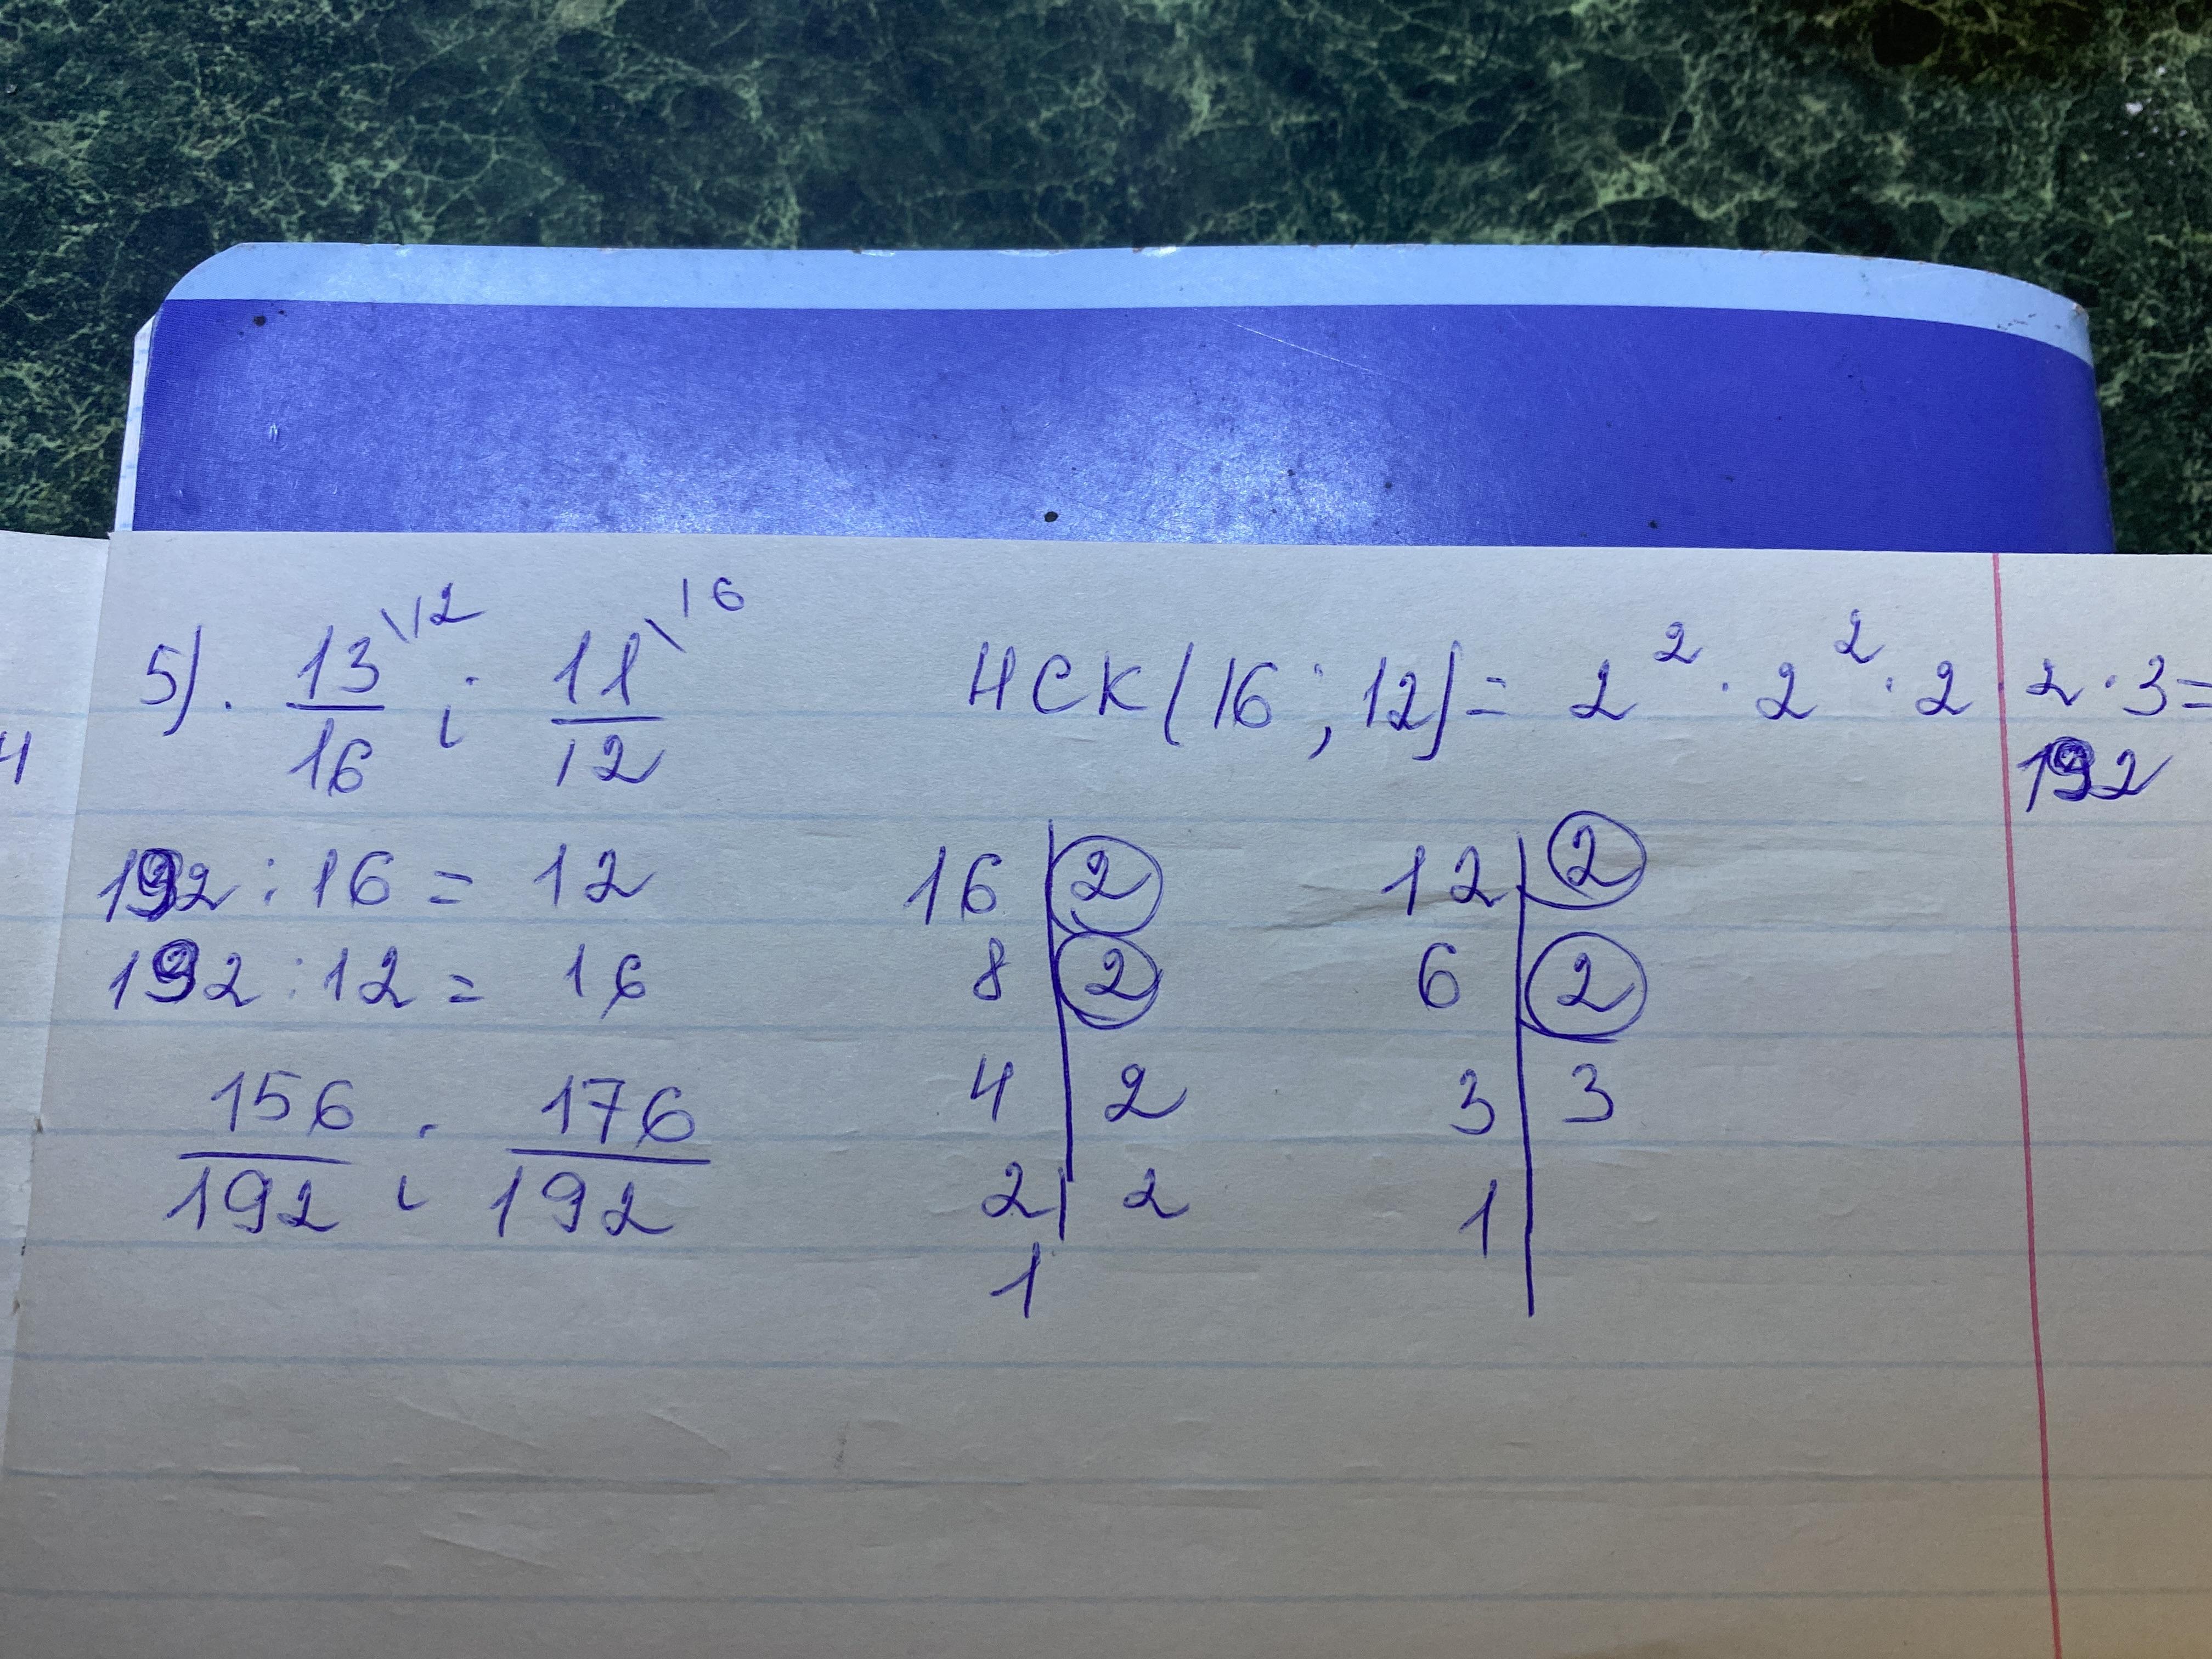 5). 13\12/16 і 11\16/12
НСК(16; 12) = 2² · 2² · 2 · 2 · 3 =
192
192 : 16 = 12
192 : 12 = 16
156/192 і 176/192
16 | 2
8 | 2
4 | 2
2 | 2
1
12 | 2
6 | 2
3 | 3
1
4